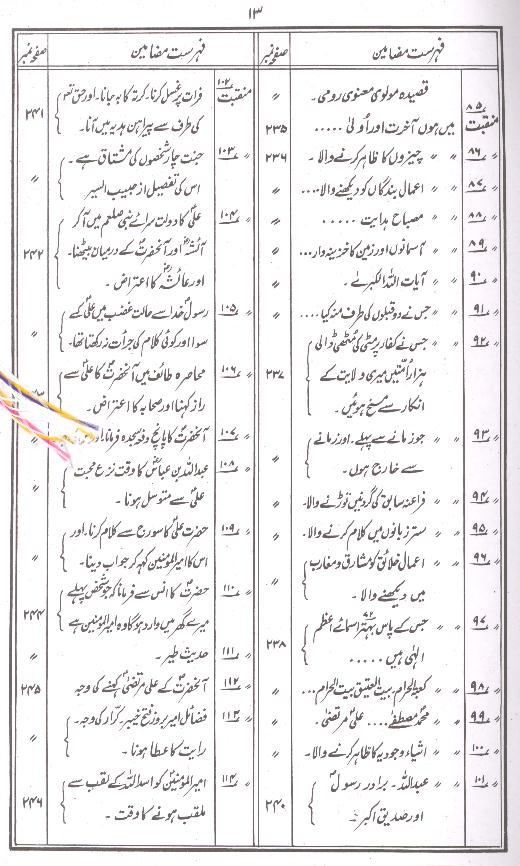 ۱۳
فہرست مضامین صفحہ نمبر
قصیدہ مولوی معنوی رومی۔ "
۸۵ منقبت میں ہوں آخرت اور اُولیٰ ..... ۲۳۵
۸۶ " " چیزوں کا ظاہر کرنے والا۔ ۲۳۶
۸۷ " " اعمال بندگاں کو دیکھنے والا... "
۸۸ " " مصباح ہدایت ..... "
۸۹ " " آسمانوں اور زمین کا خزینہ دار... "
۹۰ " " آیات اللہ الکبرٰے۔ "
۹۱ " " جس نے دو قبلوں کی طرف منہ کیا.... "
۹۲ " " جس نے کفار پر مٹی کی مٹھی ڈالی
ہزار اُمتیں میری ولایت کے ۲۳۷
انکار سے مسخ ہوئیں۔
۹۳ " " جو زمانے سے پہلے۔ اور زمانے
سے خارج ہوں۔ "
۹۴ " " فراعنہ سابق کی گردنیں توڑنے والا۔ "
۹۵ " " ستر زبانوں میں کلام کرنے والا۔ "
۹۶ " " اعمال خلائق کو مشارق و مغارب
میں دیکھنے والا۔ "
۹۷ " " جس کے پاس بہتر ۷۲ اسمائے اعظم
الٰہی ہیں ..... ۲۳۸
۹۸ " " کعبۃ الحرام۔ بیت العتیق بیت الحرام... "
۹۹ " " محمدؐ مصطفےٰ.... علیؑ مرتضیٰ۔ "
۱۰۰ " " اشیاء وجودیہ کا ظاہر کرنے والا۔ "
۱۰۱ " " عبداللہ۔ برادر رسولؐ
اور صدیق اکبر۔ ۲۴۰
فہرست مضامین صفحہ نمبر
۱۰۲ منقبت فرات پر غسل کرنا۔ کرتہ کا بہ جانا۔ اور حق تعہ
کی طرف سے پیراہن ہدیہ میں آنا۔ ۲۴۱
۱۰۳ " جنت چار شخصوں کی مشتاق ہے۔
اس کی تفصیل از حبیب السیر "
۱۰۴ " علیؑ کا دولت سرائے نبی صلعم میں آ کر
آئشہؓ اور آنحضرتؐ کے درمیان بیٹھنا۔ ۲۴۲
اور عائشہؓ کا اعتراض۔
۱۰۵ " رسولؐ خدا سے حالت غضب میں علیؑ کے
سوا اور کوئی کلام کی جرأت نہ رکھتا تھا۔ "
۱۰۶ " محاصرہ طائف میں آنحضرتؐ کا علیؑ سے
راز کہنا اور صحابہ کا اعتراض۔
۱۰۷ " آنحضرتؐ کا پانچ دفعہ سجدہ فرمانا
۱۰۸ " عبداللہ بن عباسؓ کا وقت نزع محبت
علیؑ سے متوسل ہونا۔ "
۱۰۹ " حضرت علیؑ کا سورج سے کلام کرنا۔ اور
اس کا امیر المومنین کہہ کر جواب دینا۔ "
۱۱۰ " حضرتؐ کا انس سے فرمانا کہ جو شخص پہلے
میرے گھر میں وارد ہوگا وہ امیر المومنین ہے ۲۴۴
۱۱۱ " حدیث طیر۔ "
۱۱۲ " آنحضرتؐ کے علی مرتضیٰؑ کہنے کی وجہ ۲۴۵
۱۱۳ " فضائل امیر بروز فتح خیبر۔ کرّار کی وجہ۔
رایت کا عطا ہونا۔ "
۱۱۴ " امیر المومنینؑ کو اسد اللہ کے لقب سے
ملقب ہونے کا وقت۔ ۲۴۶